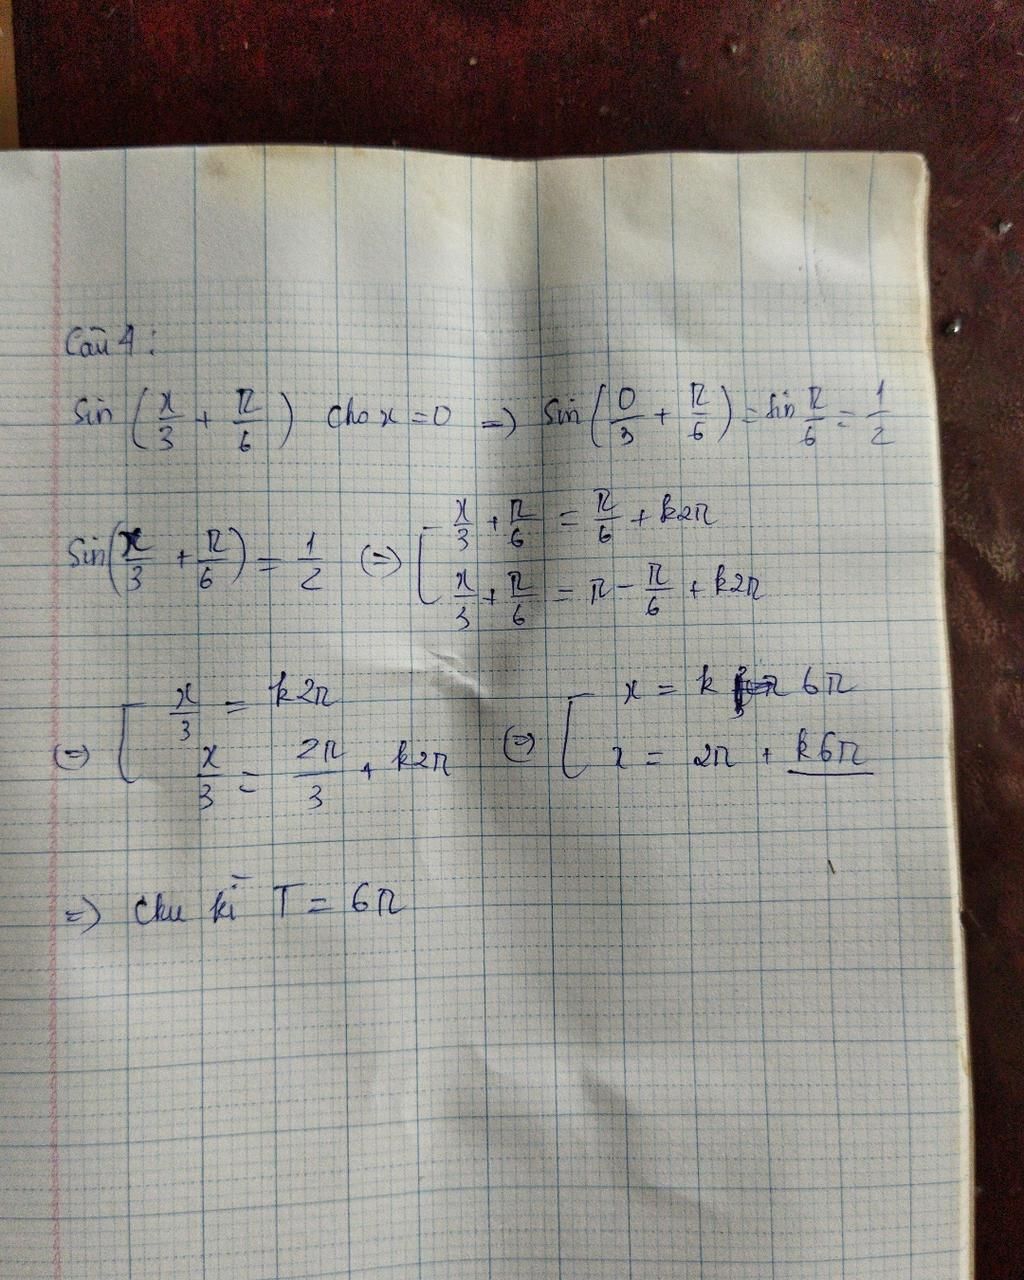 Câu 4 :
Sin (x/3 + π/6) Cho x = 0 => Sin (0/3 + π/6) = Sin π/6 = 1/2
Sin (x/3 + π/6) = 1/2 (=) [ x/3 + π/6 = π/6 + k2π
x/3 + π/6 = π - π/6 + k2π
(=) [ x/3 = k2π
x/3 = 2π/3 + k2π
(=) [ x = k 6π
x = 2π + k6π
=) Chu kì T = 6π